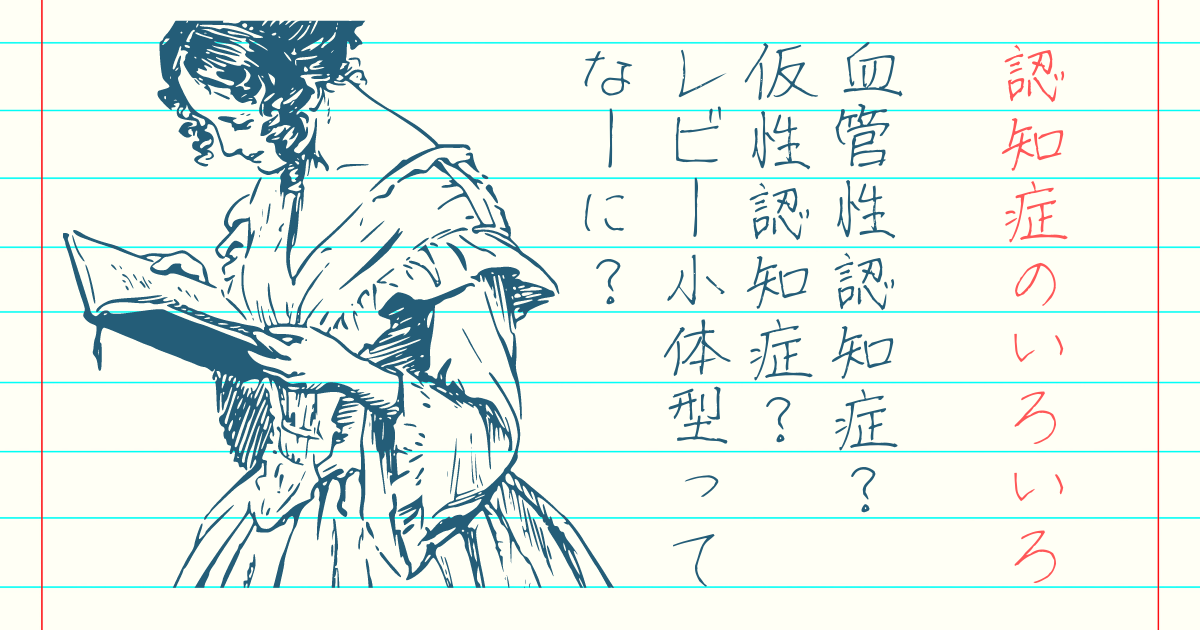 認知症のいろいろ
血管性認知症？
仮性認知症？
レビー小体型って
なーに？